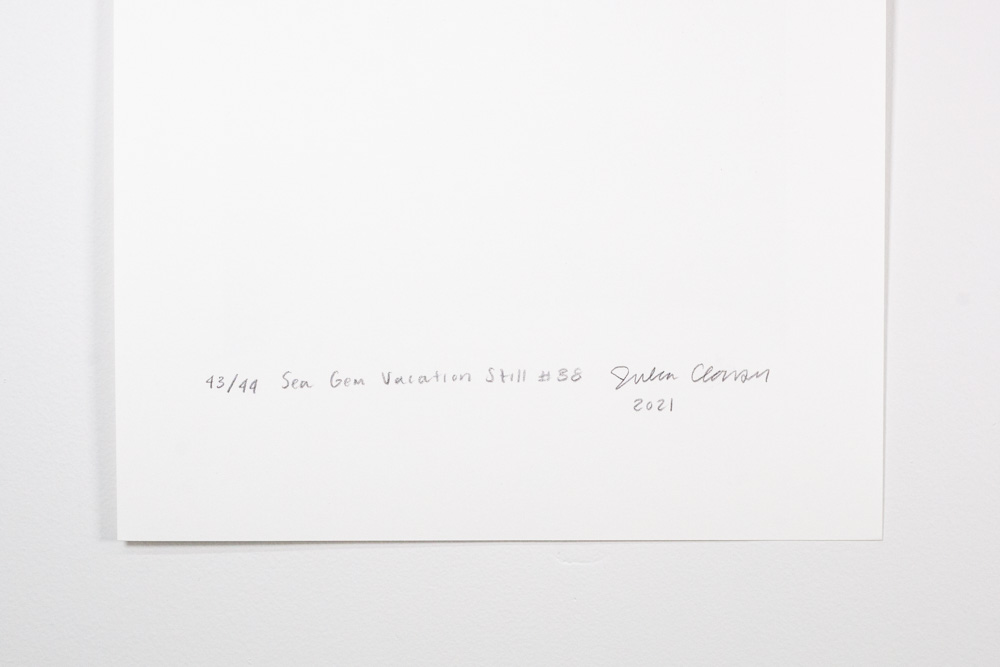 43/44 Sea Gem Vacation Still #38 Julia
2021